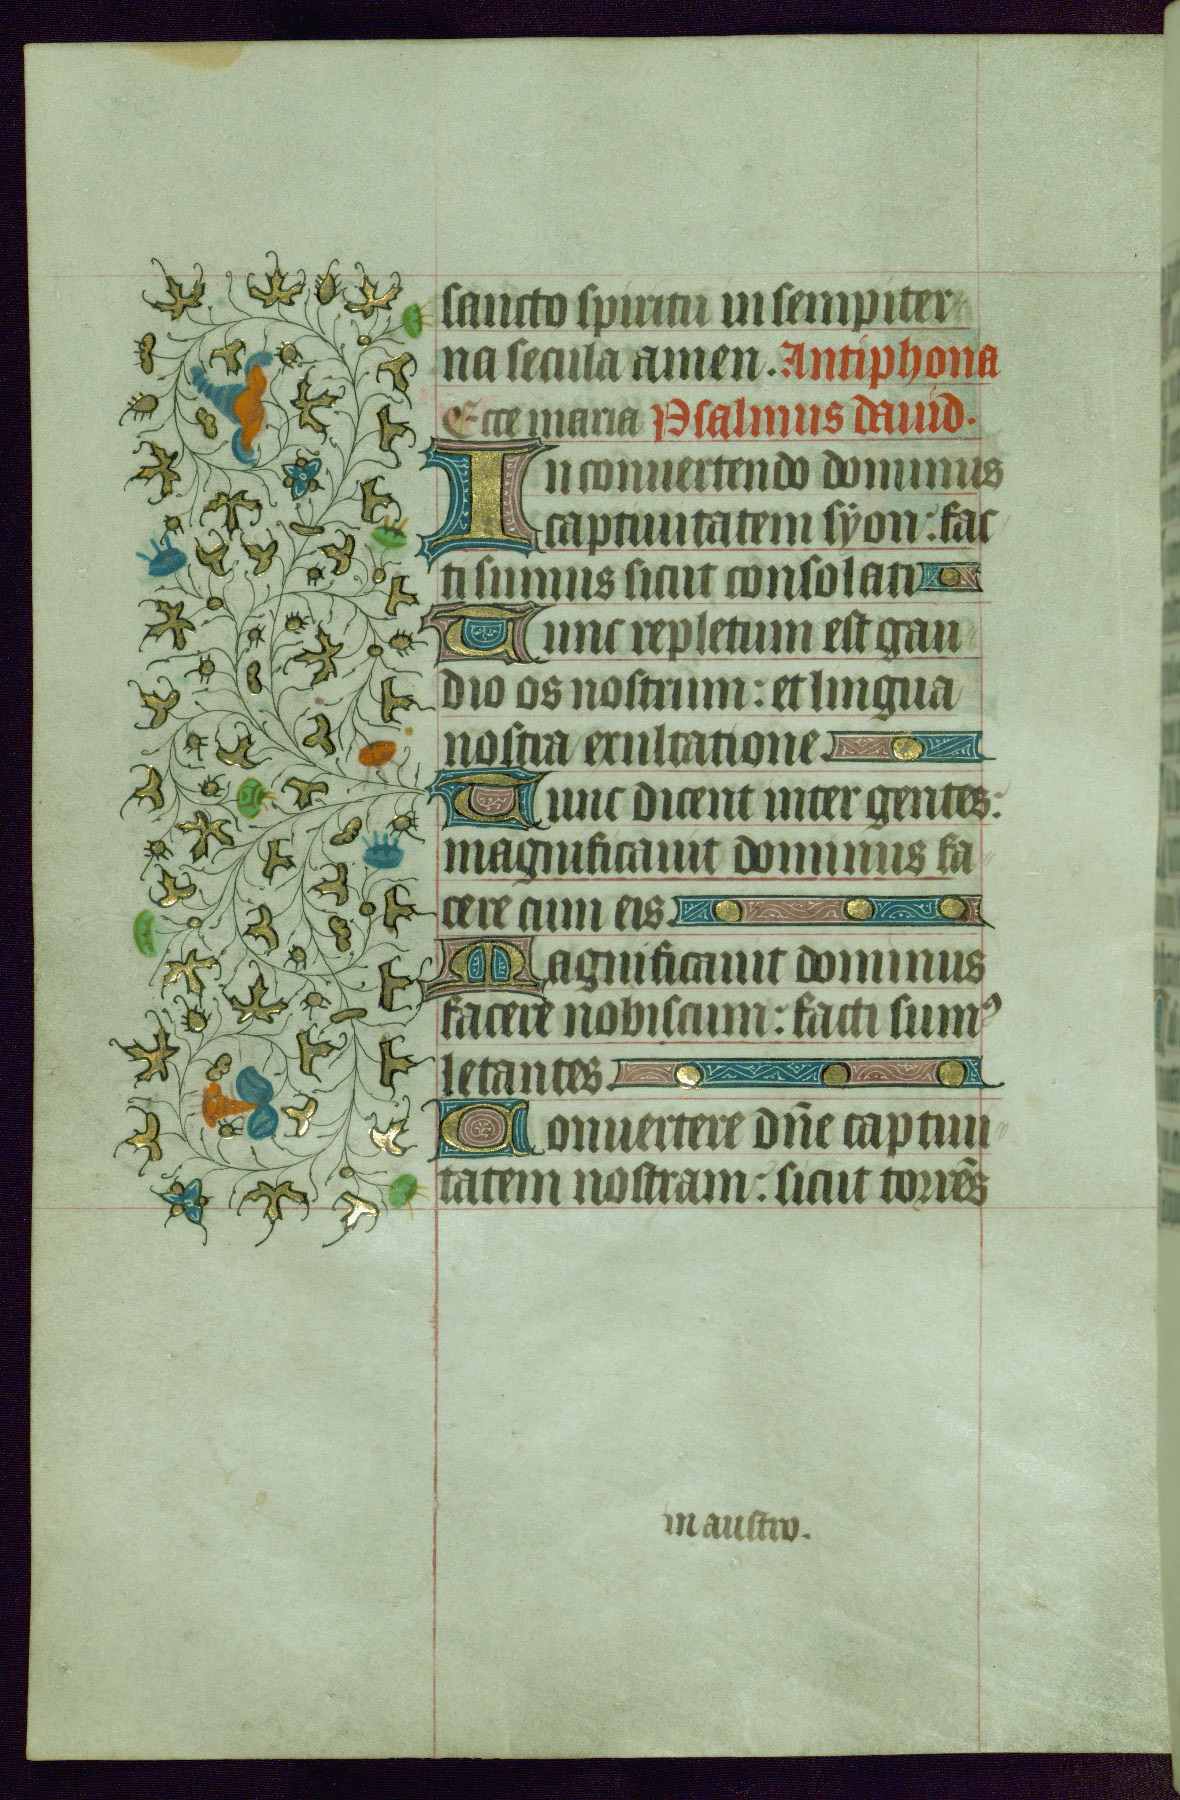 sancto spiritu in sempiter
na secula amen. Antiphona
Ecce maria Psalmus dauid.
In conuertendo dominus
captiuitatem syon: fac
ti sumus sicut consolati
Tunc repletum est gau
dio os nostrum: et lingua
nostra exultatione.
Tunc dicent inter gentes:
magnificauit dominus fa
cere cum eis.
Magnificauit dominus
facere nobiscum: facti sumꝰ
letantes.
Conuertere dn̄e captiui
tatem nostram: sicut torrēs
in austro.